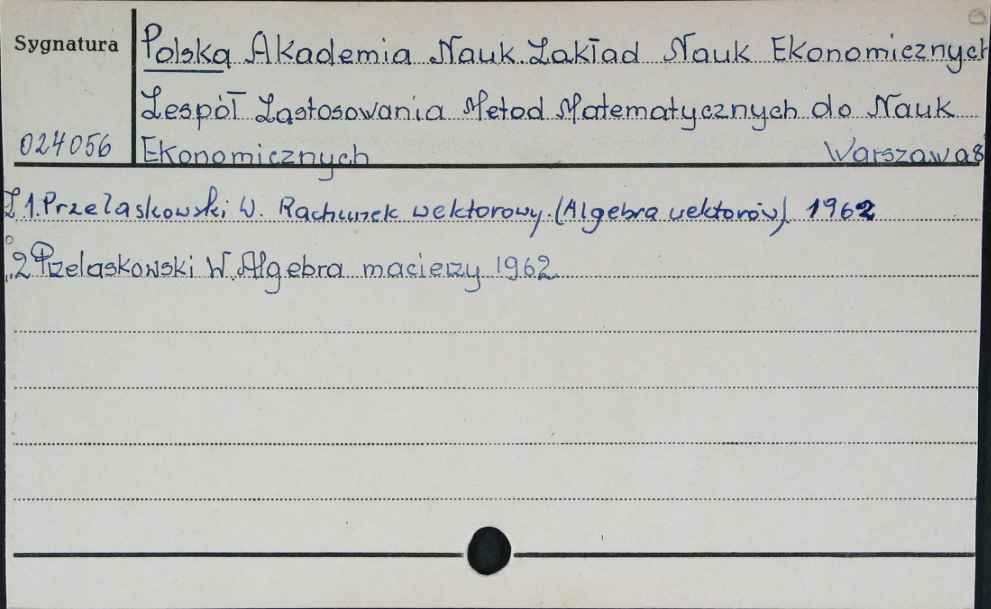 Sygnatura
Polska Akademia Nauk. Zakład Nauk Ekonomicznych
Zespół Zastosowania Metod Matematycznych do Nauk
024056 Ekonomicznych Warszawa 8°
Z 1. Przelaskowski W. Rachunek wektorowy. (Algebra wektorów). 1962
2 Przelaskowski W. Algebra macierzy 1962